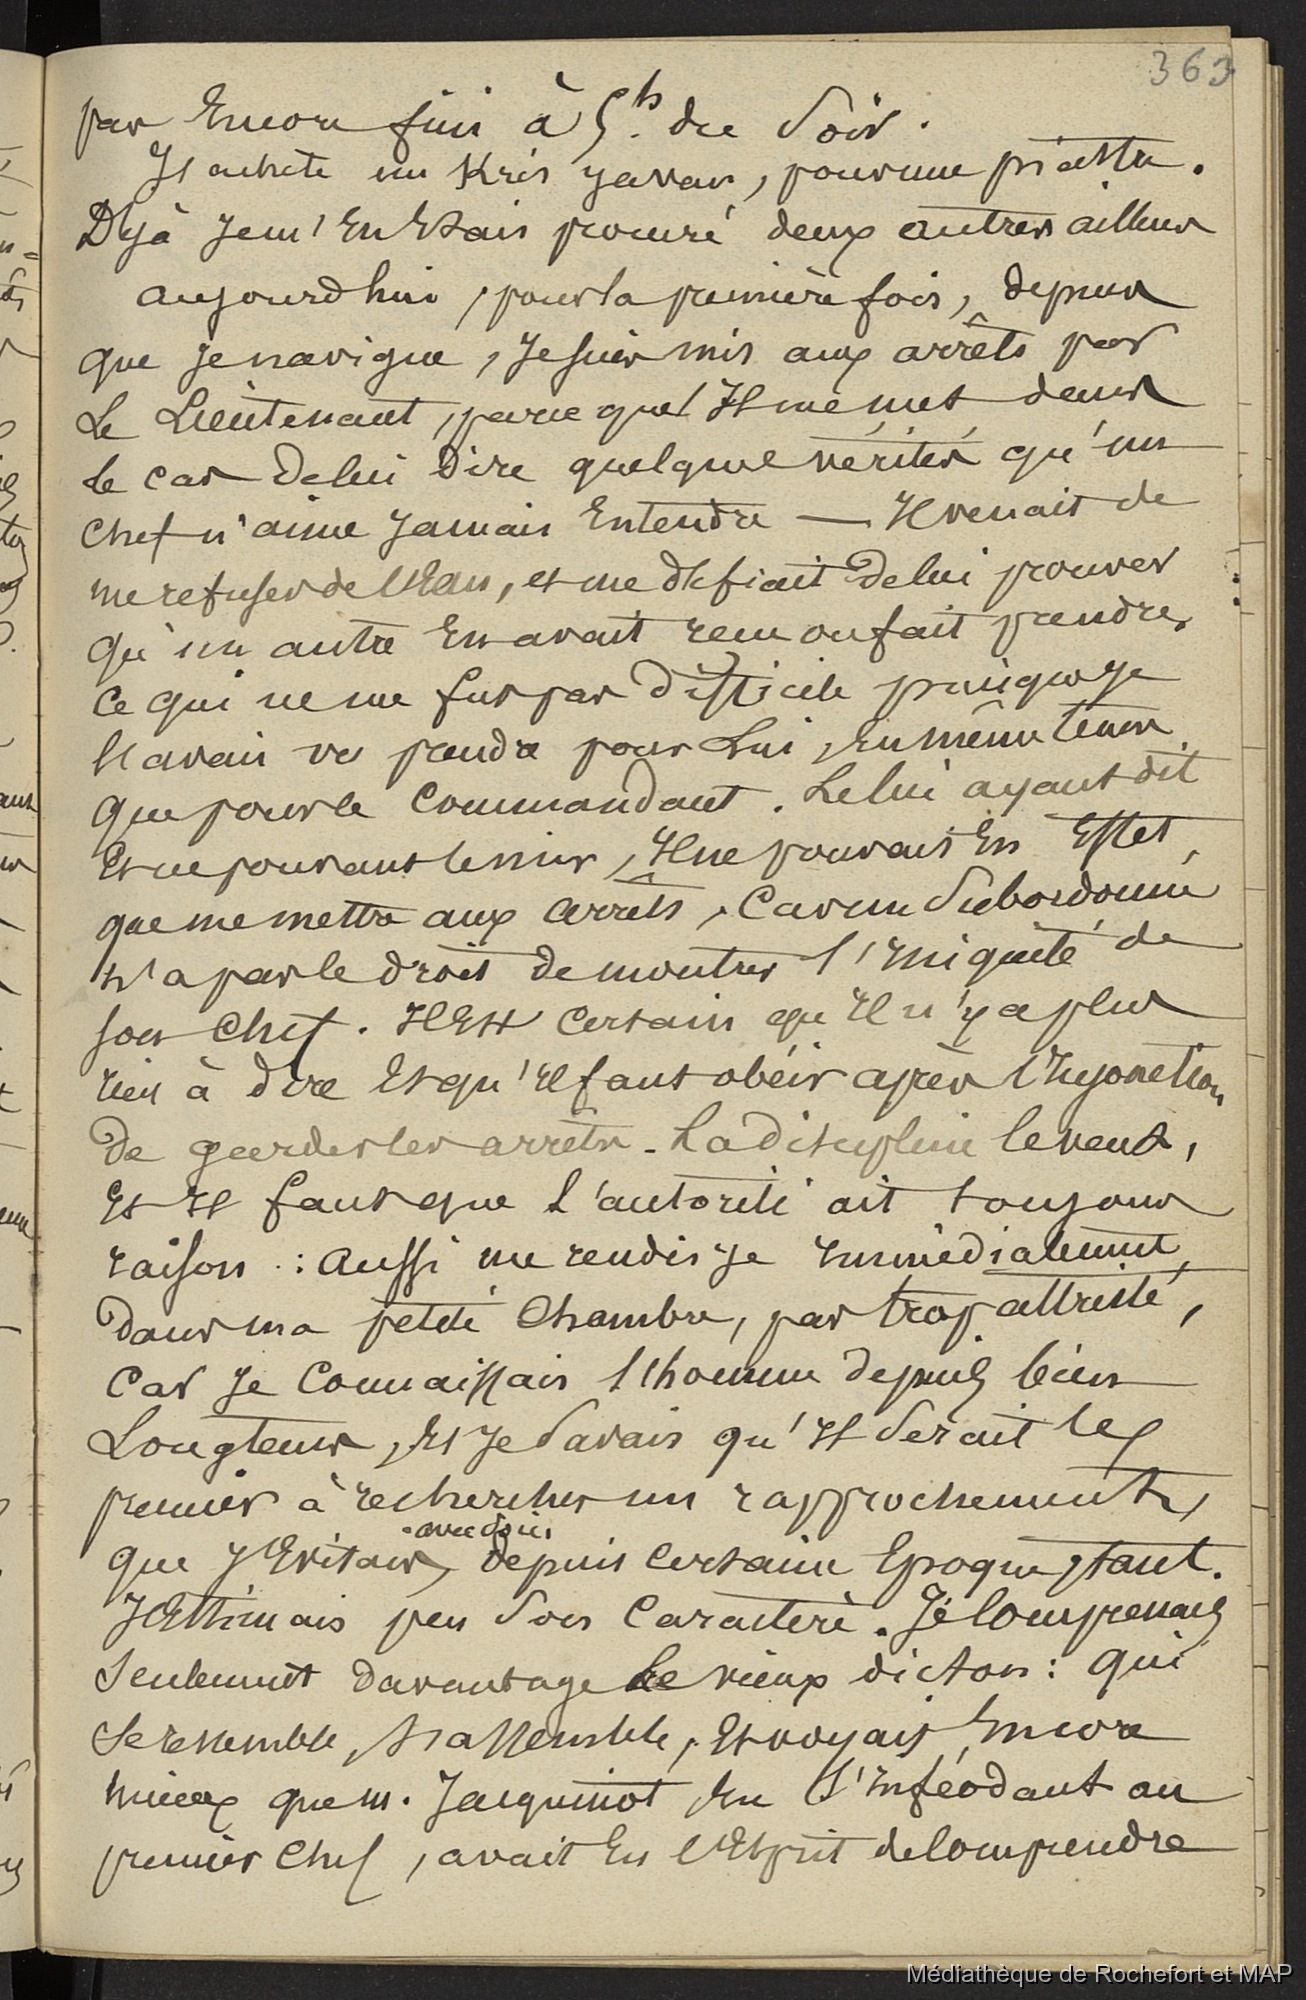 363
pas Encore fini à 5.h du Soir.
J'achète un Kris Javan, pour une piastre.
Déjà Je m'En Etais procuré deux autres ailleurs
aujourdhui, pour la première fois, depuis
que Je navigue, Je suis mis aux arrêts par
Le Lieutenant, parce que Il me met dans
le cas de lui Dire quelques vérités qu'un
chef n'aime Jamais Entendre — Il venait de
me refuser de l'Eau, et me défiait de lui prouver
qu'un autre En avait reçu ou fait prendre,
Ce qui ne me fut pas Difficile puisque Je
l'avais vu prendre pour Lui, En même tems
que pour le Commandant. Le lui ayant dit
Et ne pouvant le nier, Il ne pouvait En Effet,
que me mettre aux arrêts, Car un Subordonné
n'a pas le droit de montrer l'Iniquité de
son Chef. Il Est certain qu'Il n'y a plus
rien à dire Et qu'Il faut obéir après l'Injonction
De garder les arrêts. La Discipline le veut,
Et Il faut que L'autorité ait toujours
raison : Aussi me rendis Je Immédiatement,
Dans ma petite Chambre, pas trop attristé,
Car Je Connaissais l'homme depuis bien
Longtems, Et Je Savais qu'Il Serait le
premier à rechercher un rapprochement,
avec soin
que J'Evitais, depuis certaine Epoque, tant.
J'Estimais peu Son Caractère. Je Comprenais
Seulement Davantage Le vieux dicton : qui
Se ressemble, S'assemble, Et voyais Encore
mieux que m. Jacquinot, En S'Inféodant au
premier Chef, avait Eu l'Esprit de Comprendre
Médiathèque de Rochefort et MAP